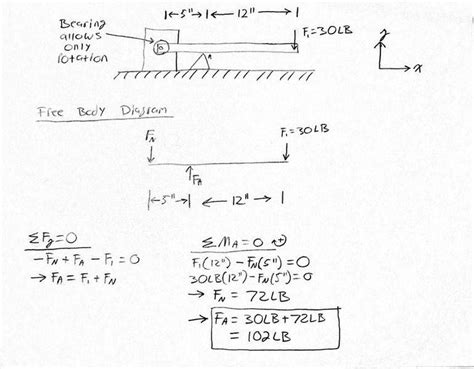 Bearing
allows
only
rotation
|←5"→|←12"→|
F₁=30LB
A
z
x
Free Body Diagram
F_N
F₁=30LB
F_A
|←5"→|←12"→|
ΣF_z=0
-F_N + F_A - F₁ = 0
→ F_A = F₁ + F_N
ΣM_A = 0
F₁(12") - F_N(5") = 0
30LB(12") - F_N(5") = 0
→ F_N = 72LB
→ F_A = 30LB + 72LB
= 102LB